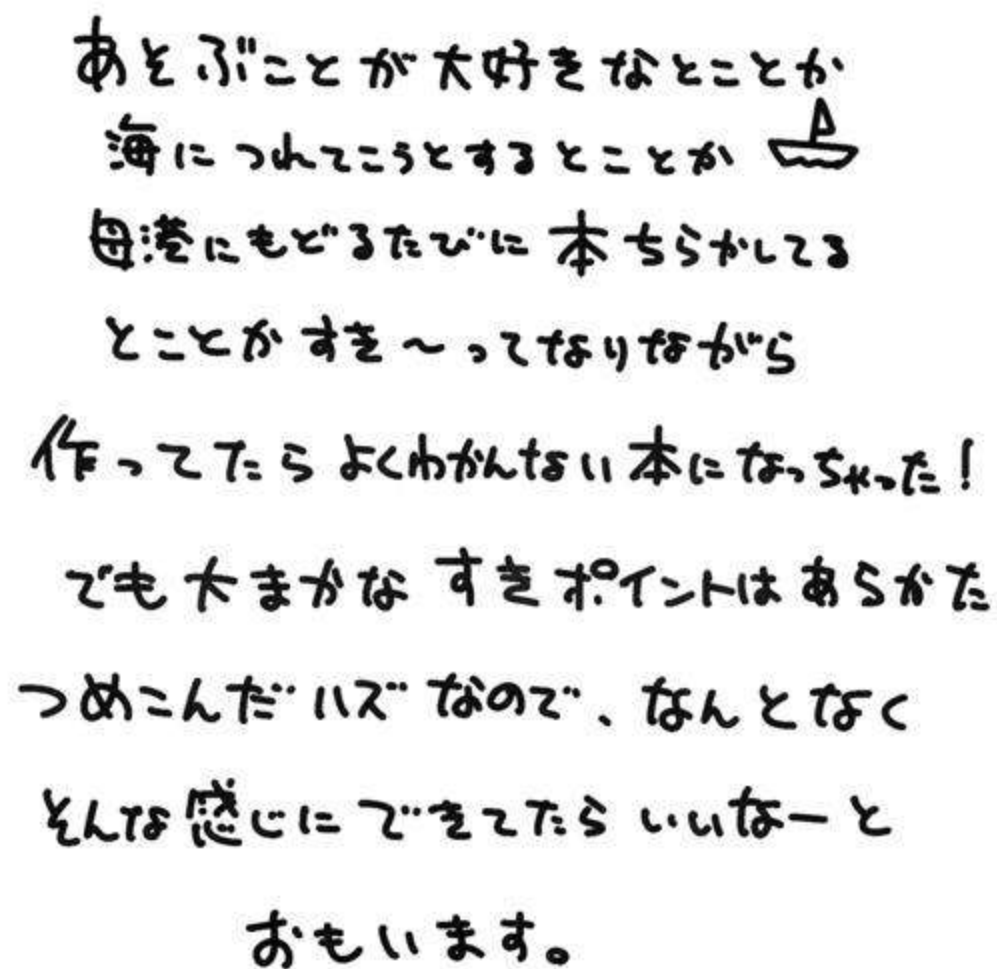 あそぶことが大好きなとことか
海につれてこうとするとことか
母港にもどるたびに本ちらかしてる
とことかすき〜ってなりながら
作ってたらよくわかんない本になっちゃった!
でも大まかなすきポイントはあらかた
つめこんだハズなので、なんとなく
そんな感じにできてたらいいなーと
おもいます。